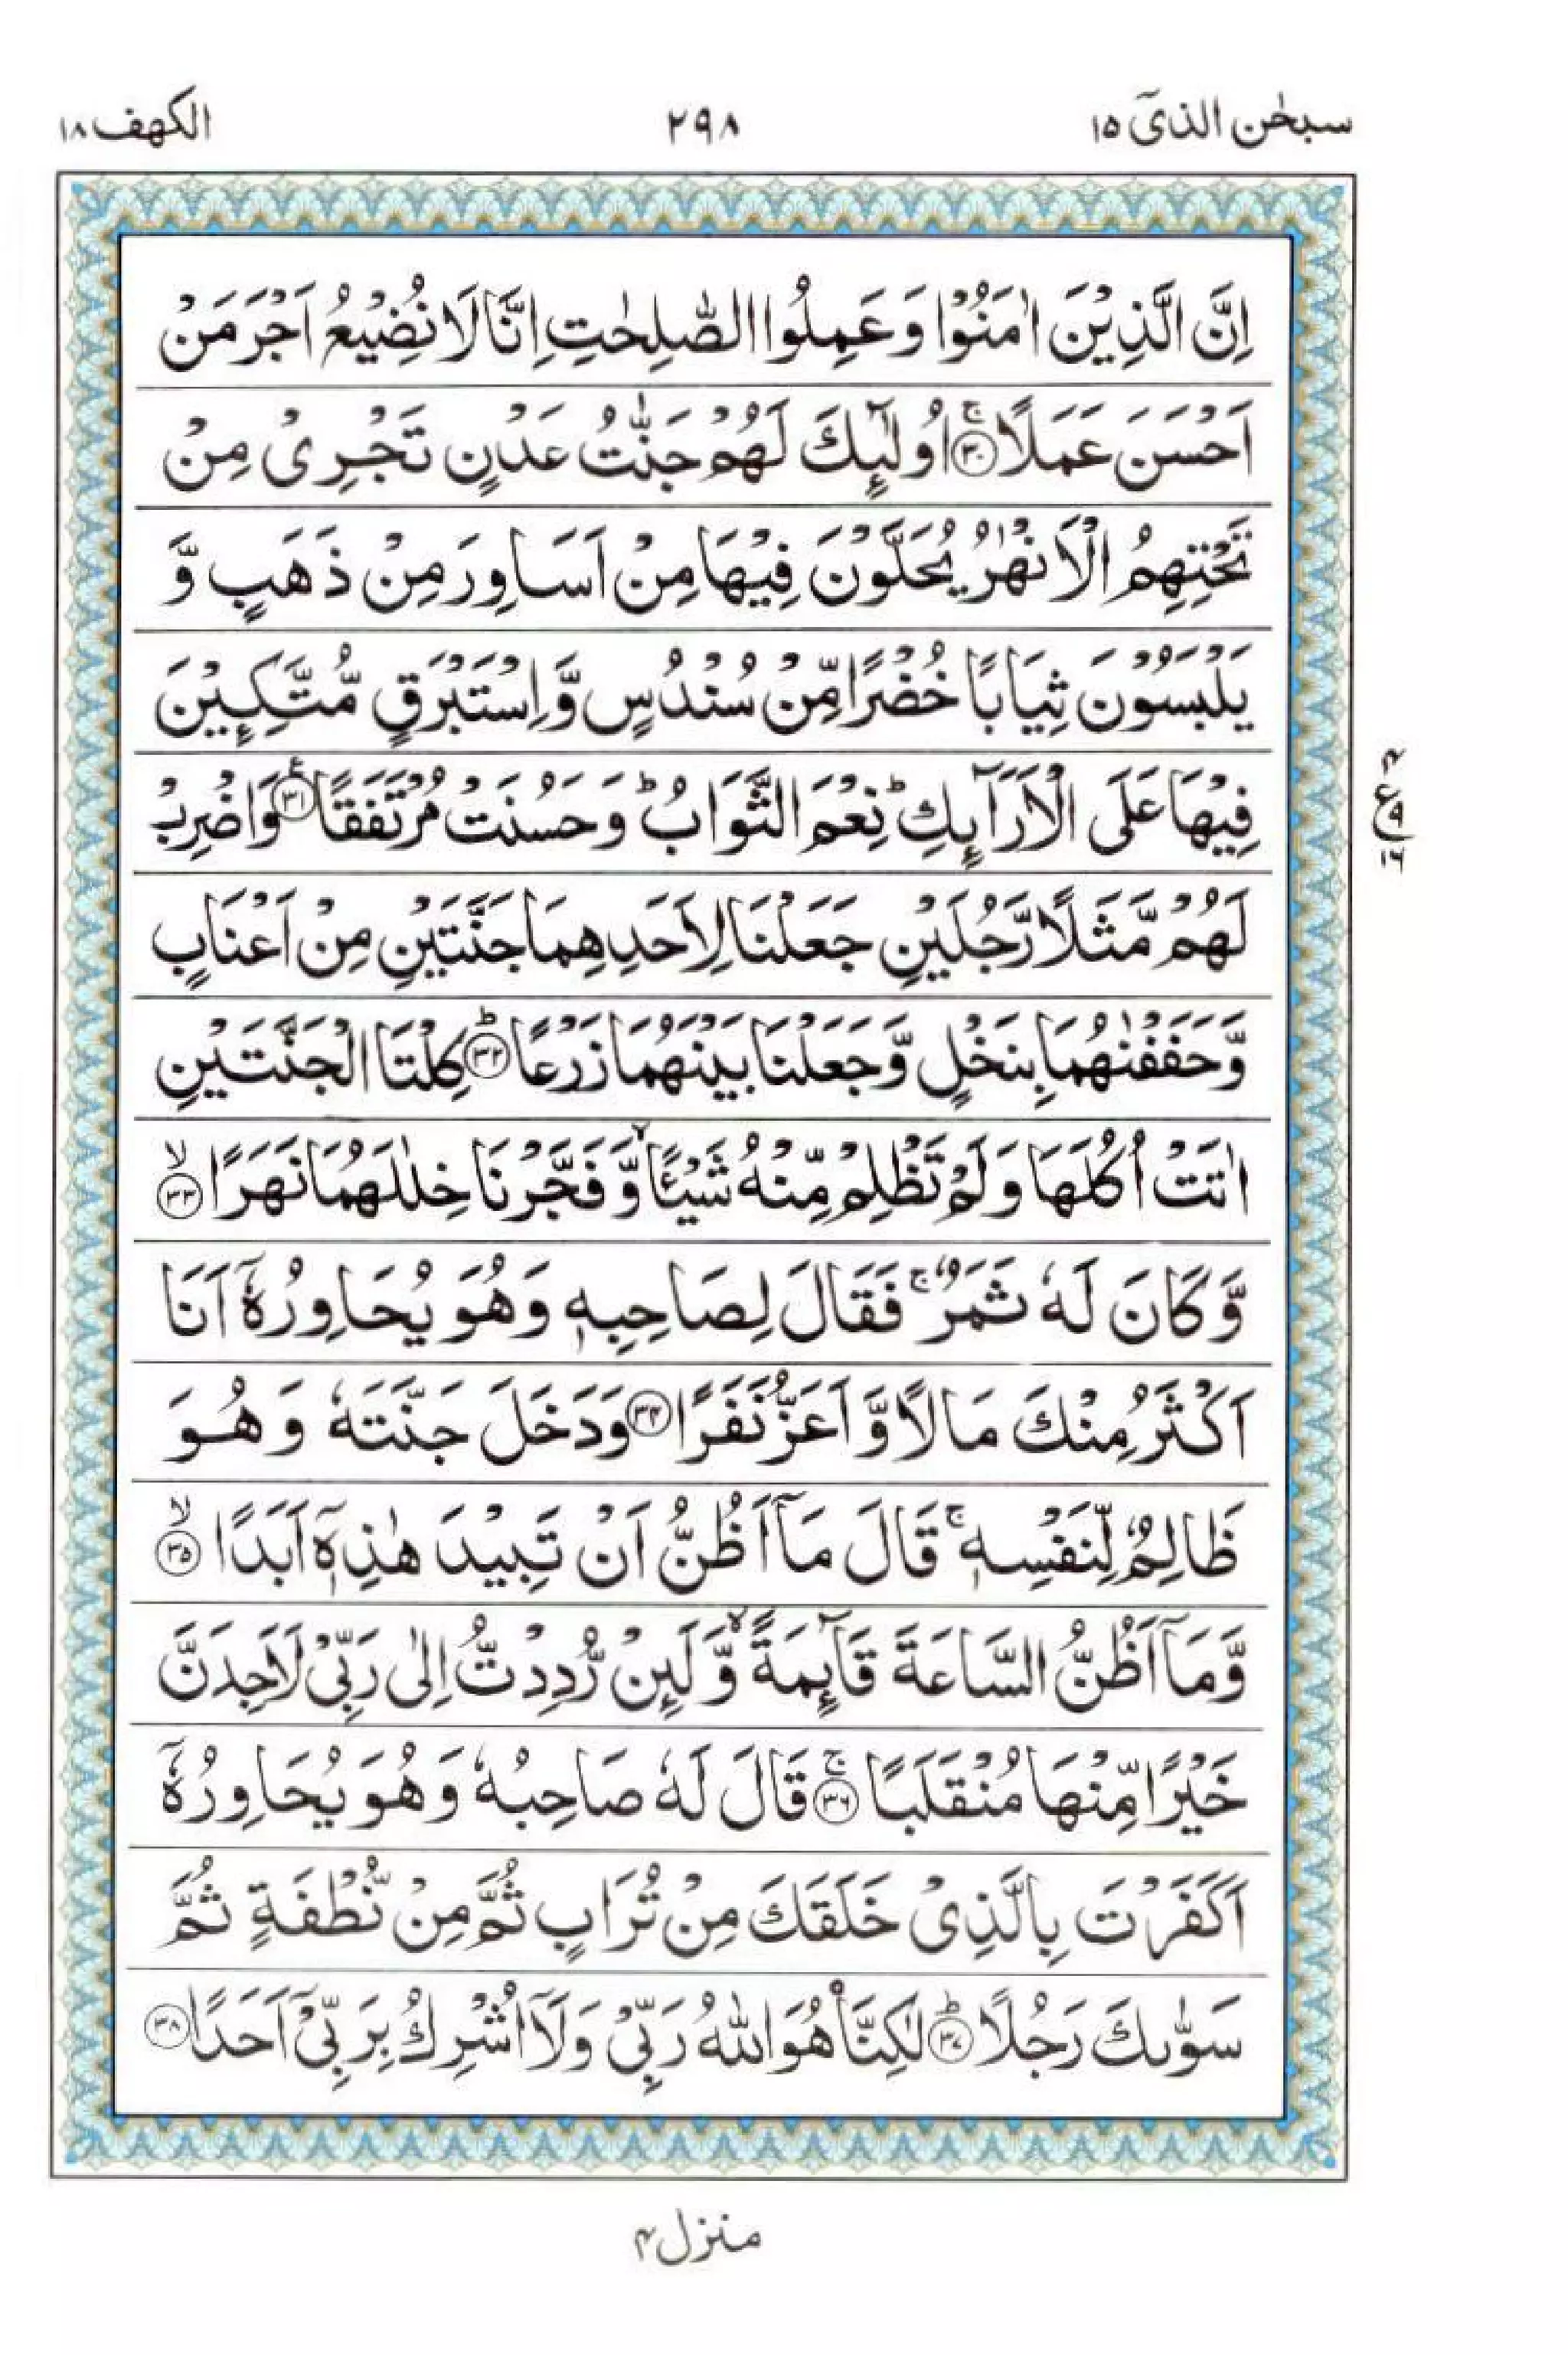 سبحٰن الذیٓ ۱۵
۲۹۸
الکهف ۱۸
اِنَّ الَّذِيْنَ اٰمَنُوْا وَعَمِلُوا الصّٰلِحٰتِ اِنَّا لَا نُضِيْعُ اَجْرَ مَنْ
اَحْسَنَ عَمَلًا ۚ﴿۳۰﴾ اُولٰٓئِكَ لَهُمْ جَنّٰتُ عَدْنٍ تَجْرِىْ مِنْ
تَحْتِهِمُ الْاَنْهٰرُ يُحَلَّوْنَ فِيْهَا مِنْ اَسَاوِرَ مِنْ ذَهَبٍ وَّ
يَلْبَسُوْنَ ثِيَابًا خُضْرًا مِّنْ سُنْدُسٍ وَّاِسْتَبْرَقٍ مُّتَّكِـِٕيْنَ
فِيْهَا عَلَى الْاَرَآئِكِ ؕ نِعْمَ الثَّوَابُ ؕ وَحَسُنَتْ مُرْتَفَقًا ﴿۳۱﴾ وَاضْرِبْ
لَهُمْ مَّثَلًا رَّجُلَيْنِ جَعَلْنَا لِاَحَدِهِمَا جَنَّتَيْنِ مِنْ اَعْنَابٍ
وَّحَفَفْنٰهُمَا بِنَخْلٍ وَّجَعَلْنَا بَيْنَهُمَا زَرْعًا ؕ﴿۳۲﴾ كِلْتَا الْجَنَّتَيْنِ
اٰتَتْ اُكُلَهَا وَلَمْ تَظْلِمْ مِّنْهُ شَيْـًٔا ۙ وَّفَجَّرْنَا خِلٰلَهُمَا نَهَرًا ۙ﴿۳۳﴾
وَّكَانَ لَهٗ ثَمَرٌ ۚ فَقَالَ لِصَاحِبِهٖ وَهُوَ يُحَاوِرُهٗۤ اَنَا
اَكْثَرُ مِنْكَ مَالًا وَّاَعَزُّ نَفَرًا ﴿۳۴﴾ وَدَخَلَ جَنَّتَهٗ وَهُوَ
ظَالِمٌ لِّنَفْسِهٖ ۚ قَالَ مَاۤ اَظُنُّ اَنْ تَبِيْدَ هٰذِهٖۤ اَبَدًا ۙ﴿۳۵﴾
وَّمَاۤ اَظُنُّ السَّاعَةَ قَآئِمَةً ۙ وَّلَئِنْ رُّدِدْتُّ اِلٰى رَبِّىْ لَاَجِدَنَّ
خَيْرًا مِّنْهَا مُنْقَلَبًا ۚ﴿۳۶﴾ قَالَ لَهٗ صَاحِبُهٗ وَهُوَ يُحَاوِرُهٗۤ
اَكَفَرْتَ بِالَّذِىْ خَلَقَكَ مِنْ تُرَابٍ ثُمَّ مِنْ نُّطْفَةٍ ثُمَّ
سَوّٰىكَ رَجُلًا ؕ﴿۳۷﴾ لٰكِنَّا۠ هُوَ اللّٰهُ رَبِّىْ وَلَاۤ اُشْرِكُ بِرَبِّىْۤ اَحَدًا ﴿۳۸﴾
منزل ۴